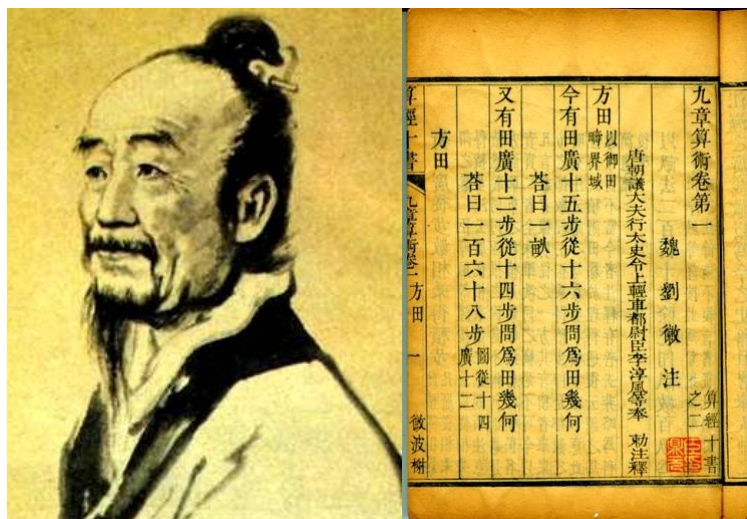 九章算術卷第一 算經十書之二
魏 劉徽 注
唐朝議大夫行太史令上輕車都尉臣李淳風等奉 勅注釋
方田 以御田疇界域
今有田廣十五步從十六步問爲田幾何
荅曰一畝
又有田廣十二步從十四步問爲田幾何
荅曰一百六十八步 圖從十四廣十二
方田
算經十書 九章算術卷一 方田 一 微波榭